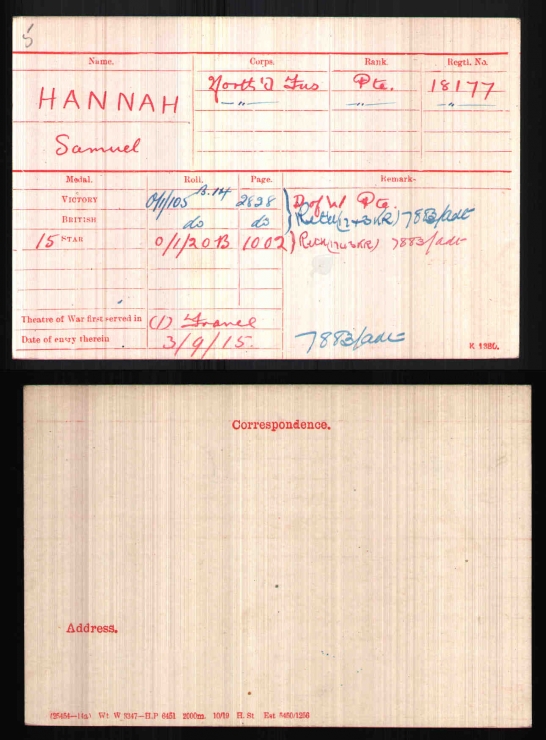 5
Name. Corps. Rank. Regtl. No.
HANNAH North'd Fus Pte. 18177
Samuel —„— —„— —„—
Medal. Roll. Page. Remarks
VICTORY O/1/105 B.14 2828 D of W Pte.
BRITISH do do Retd (1743KR) 7883/adt
15 STAR O/1/20B 1002 Retd (1743KR) 7883/adt
Theatre of War first served in (1) France
Date of entry therein 3/9/15. 7883/adt
K 1380.
Correspondence.
Address.
Wt W 3347—H.P 6451 2000m. 10/19 H. St Est 5450/1256